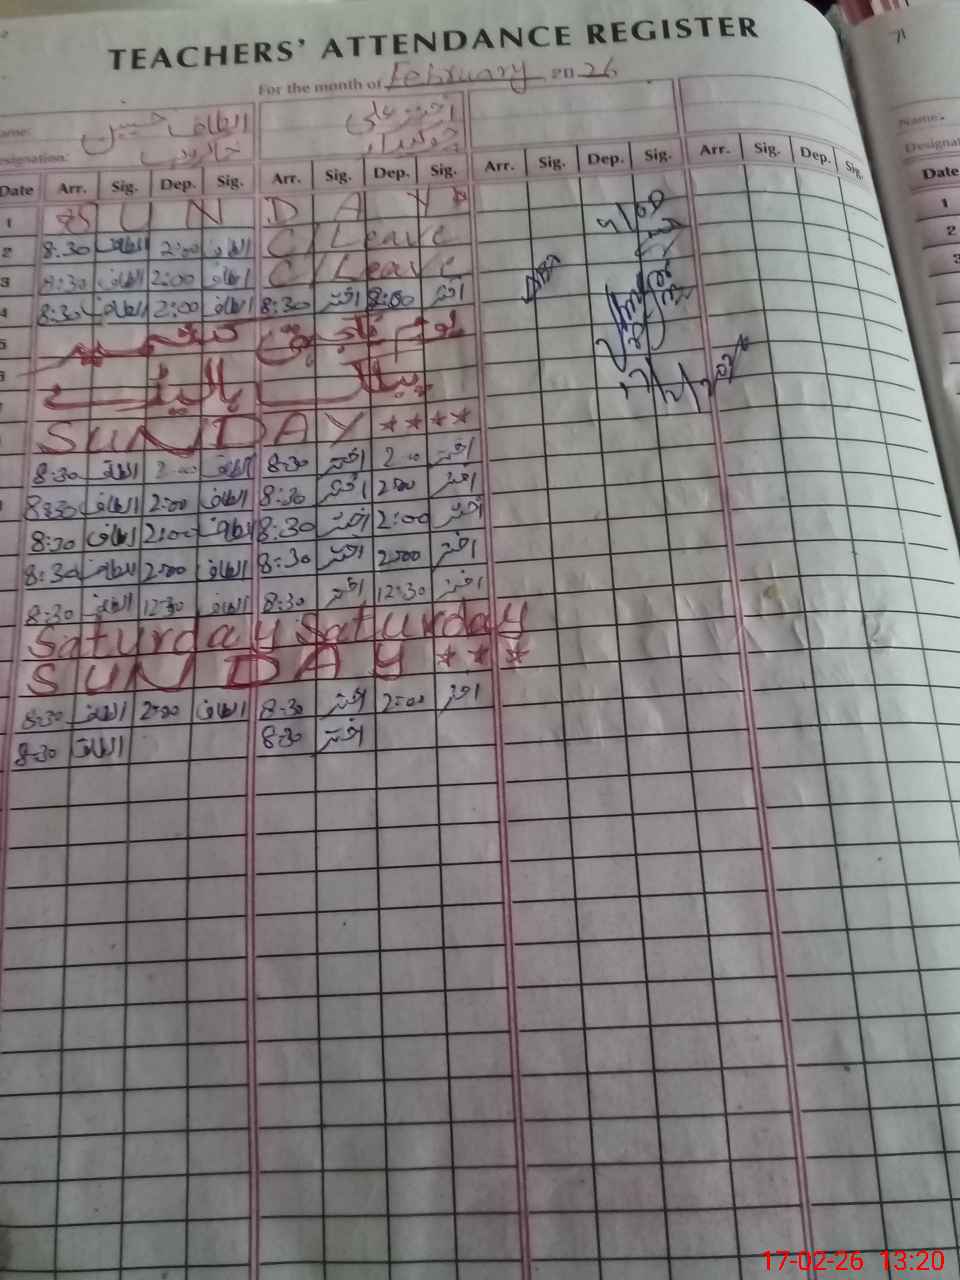 TEACHERS' ATTENDANCE REGISTER
For the month of February 2026
ame: الطاف حسین اختر علی
esignation: چوکیدار
Date Arr. Sig. Dep. Sig. Arr. Sig. Dep. Sig. Arr. Sig. Dep. Sig. Arr. Sig. Dep. Sig.
1 S U N D A Y
2 8:30 الطاف 2:00 الطاف C/Leave
3 8:30 الطاف 2:00 الطاف C/Leave
4 8:30 الطاف 2:00 الطاف 8:30 اختر 8:00 اختر
5 یوم یکجہتی کشمیر
SUNDAY ****
8:30 الطاف 2:00 الطاف 8:30 اختر 2:00 اختر
8:30 الطاف 2:00 الطاف 8:30 اختر 2:00 اختر
8:30 الطاف 2:00 الطاف 8:30 اختر 2:00 اختر
8:30 الطاف 2:00 الطاف 8:30 اختر 2:00 اختر
8:30 الطاف 12:30 الطاف 8:30 اختر 12:30 اختر
Saturday Saturday
SUNDAY ***
8:30 الطاف 2:00 الطاف 8:30 اختر 2:00 اختر
8:30 الطاف 8:30 اختر
Name.
Designat
Date
1
2
3
17-02-26 13:20